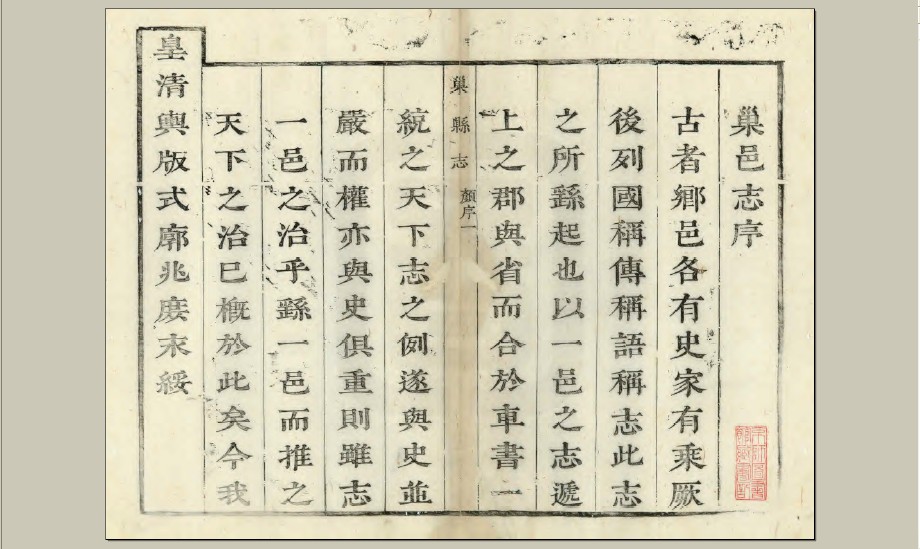 巢邑志序
古者鄉邑各有史家有乘厥
後列國稱傳稱語稱志此志
之所繇起也以一邑之志遞
上之郡與省而合於車書一
巢縣志
顏序一
統之天下志之例遂與史並
嚴而權亦與史俱重則雖志
一邑之治乎繇一邑而推之
天下之治已概於此矣今我
皇清輿版式廓兆庶末綏